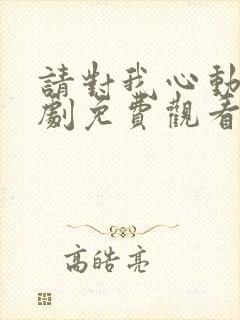 請對我心動
劇免費觀看
高皓亮